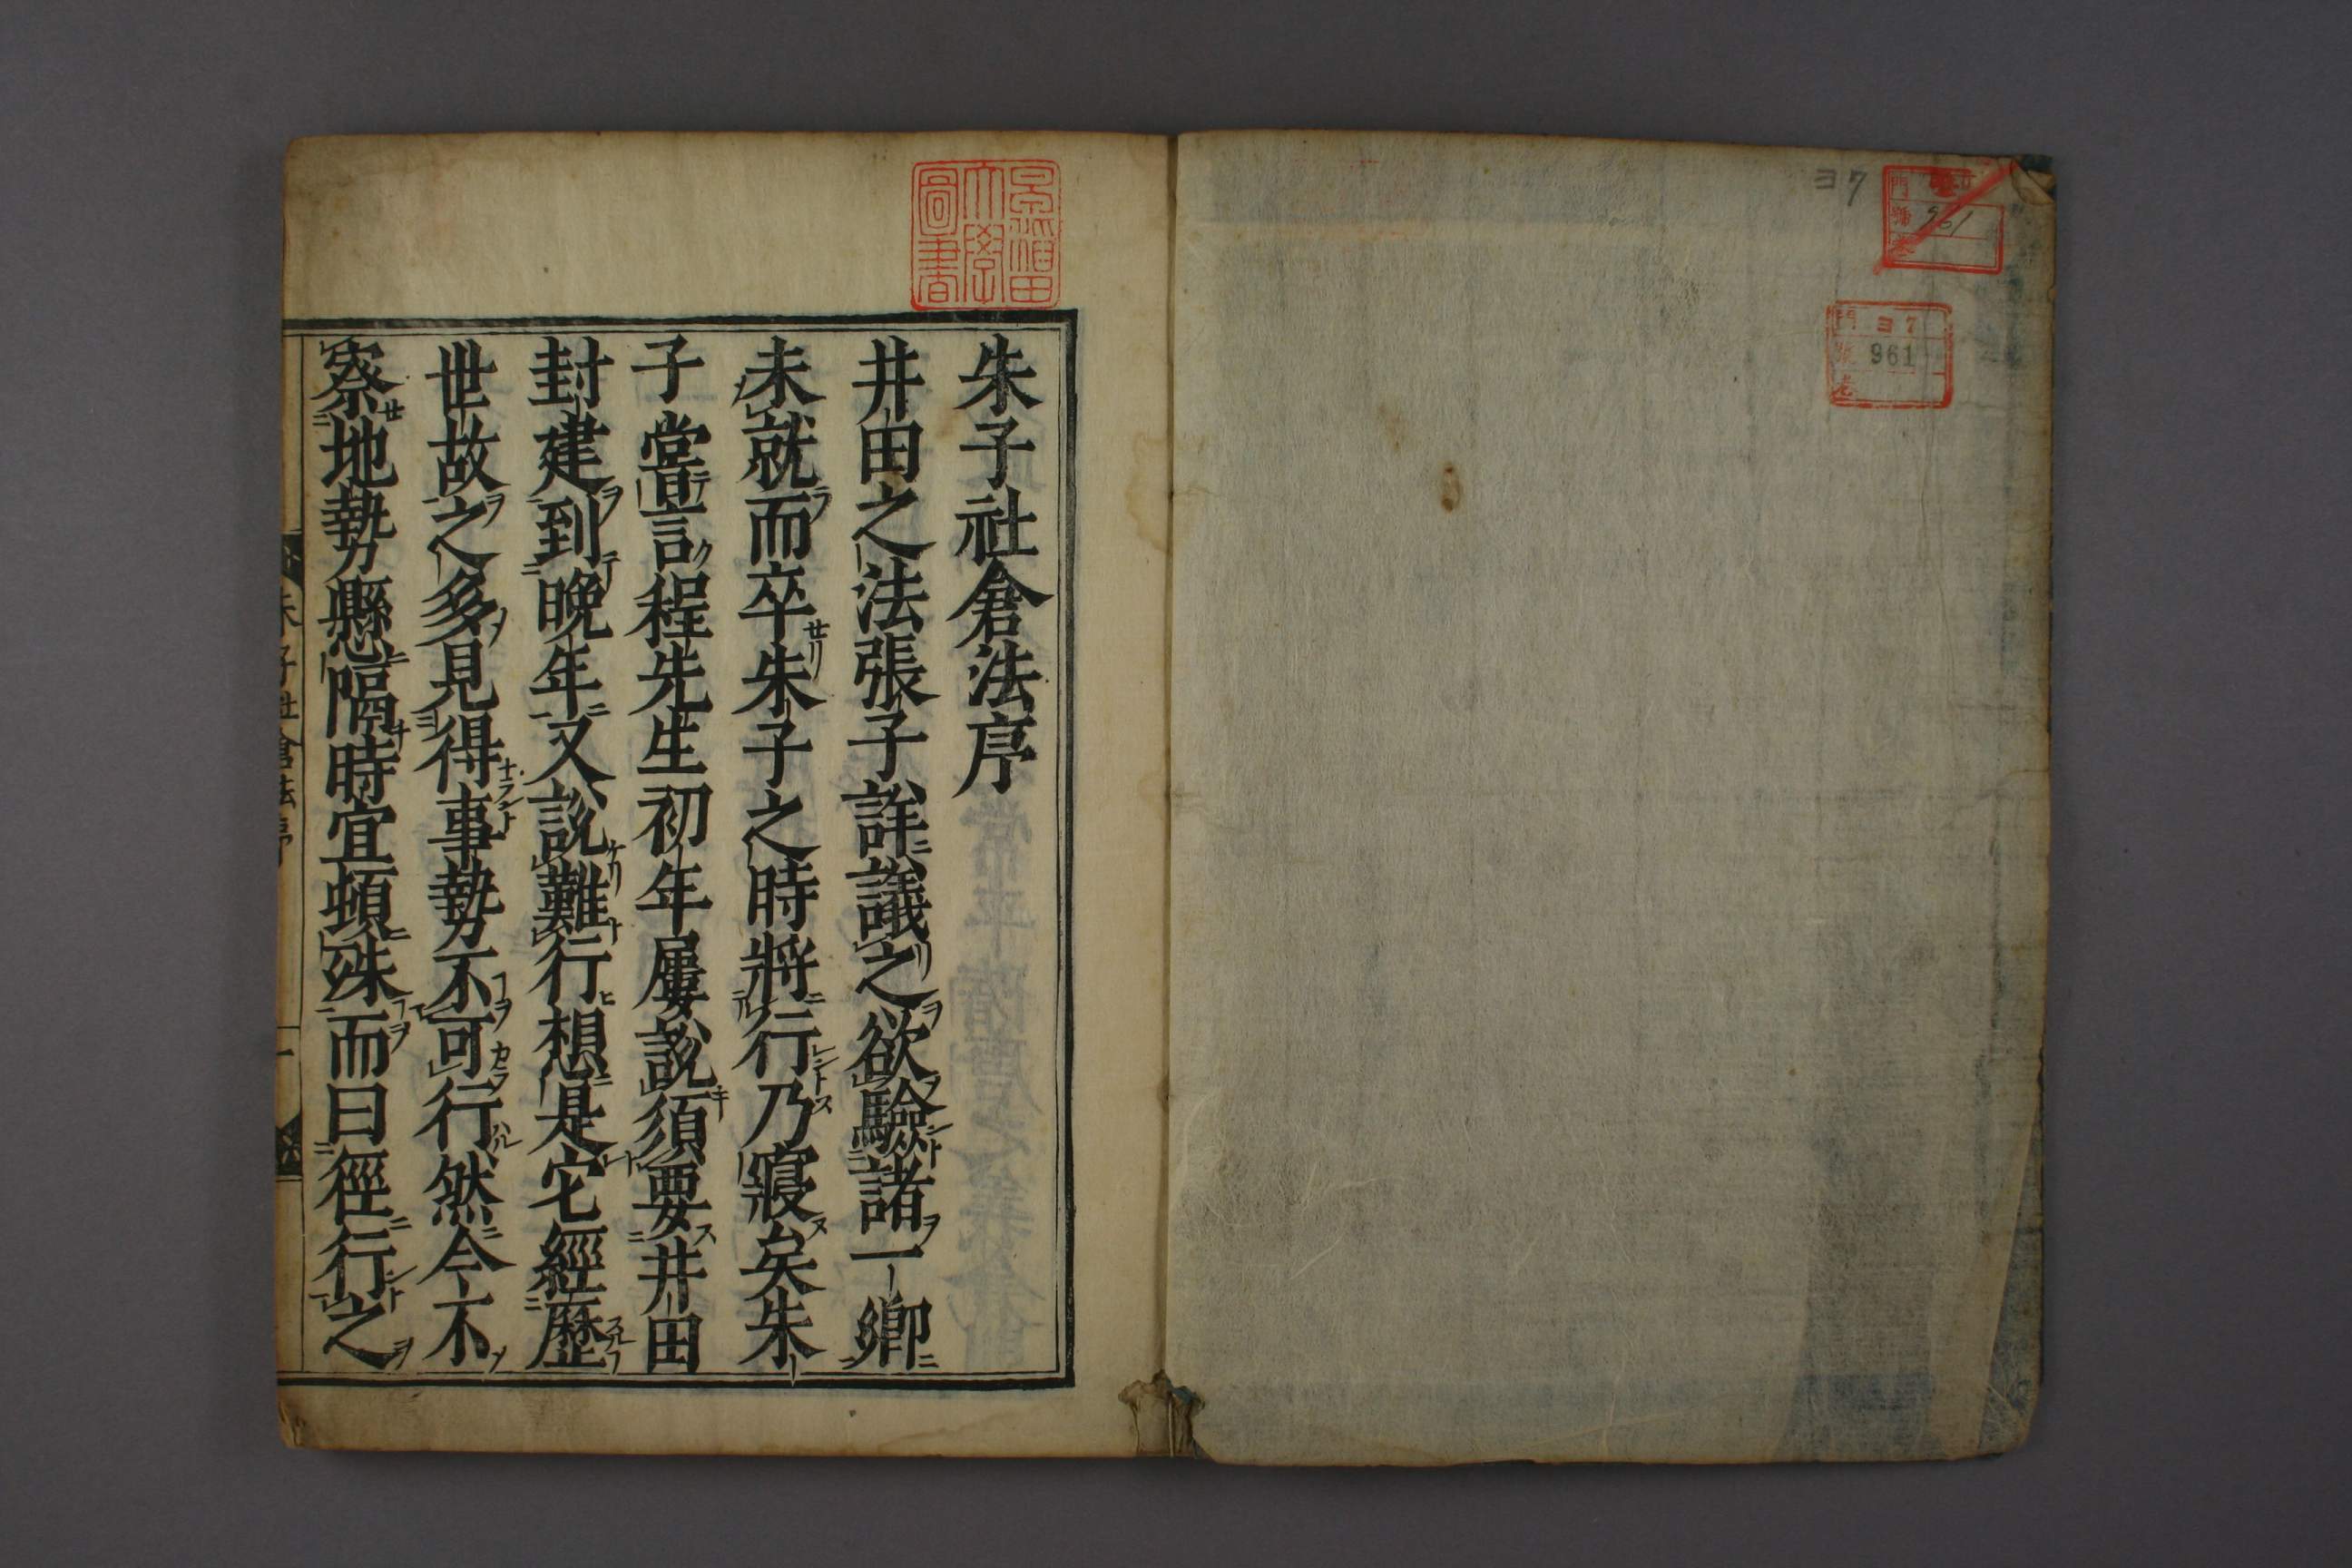 ヨ7
961
門 ヨ7
号 961
巻
早稲田大學圖書
朱子社倉法序
井田之法張子詳議之欲驗諸一鄉
未就而卒朱子之時將行乃寢矣朱
子嘗言程先生初年屢說須要井田
封建到晚年又說難行想是它經歷
世故之多見得事勢不可行然今不
察地勢懸隔時宜頓殊而曰徑行之
朱子社倉法序 一